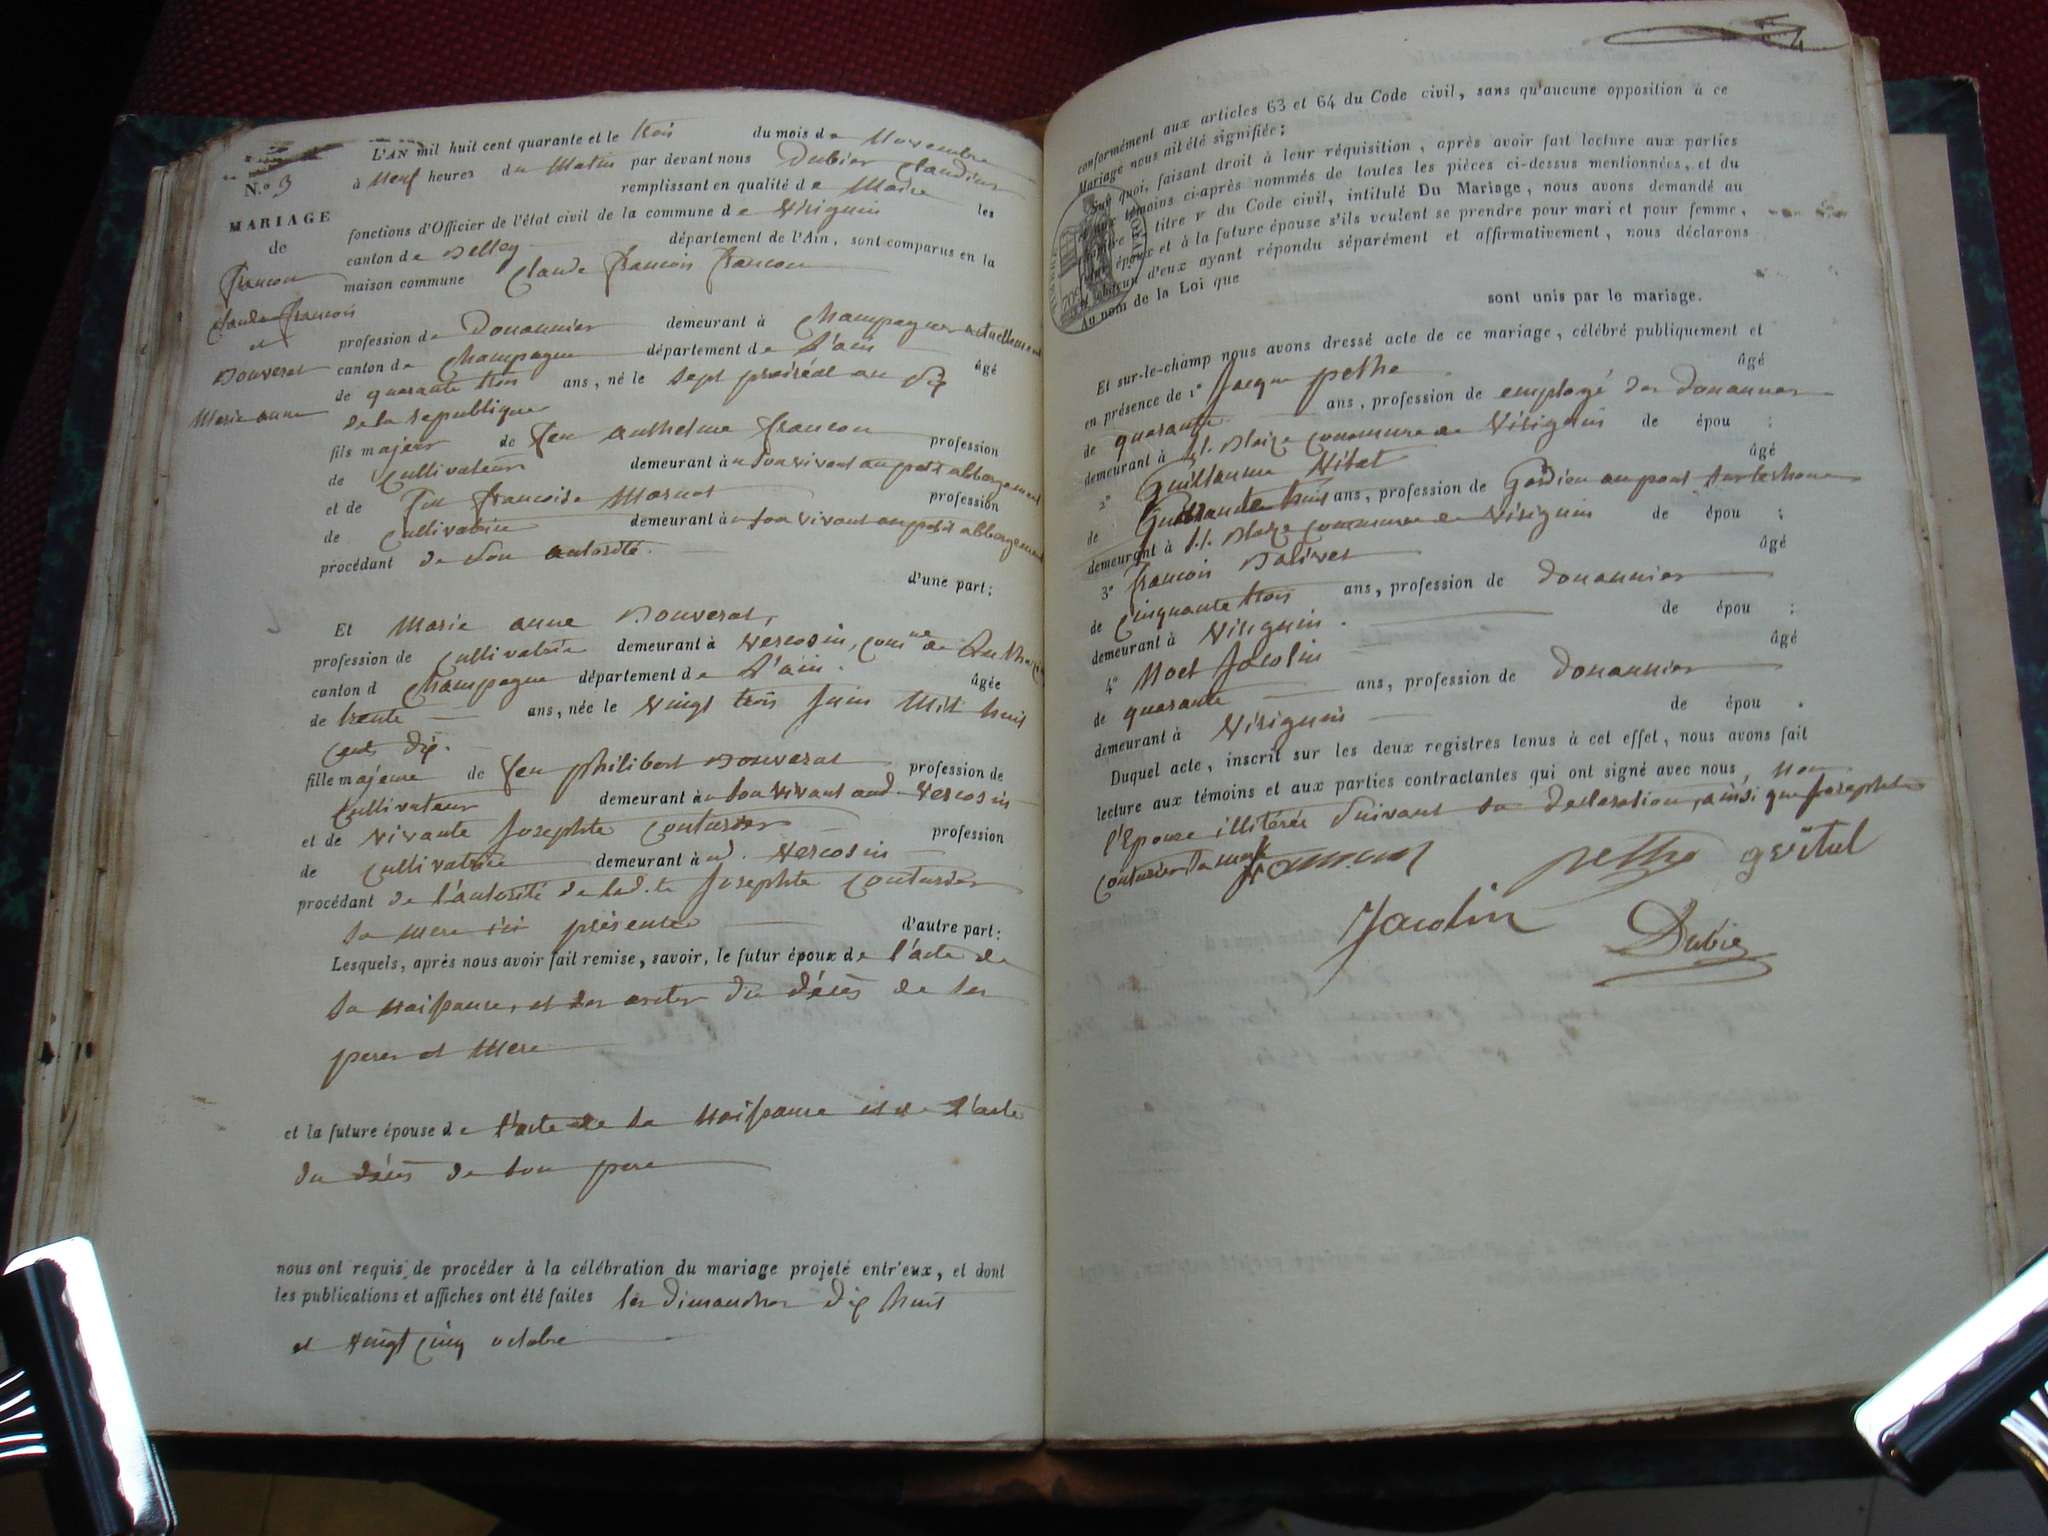 N.o 3
MARIAGE
de
francon
Claude francois
et
Bouverat
Marie anne
L'AN mil huit cent quarante et le trois du mois de Novembre
à Neuf heures du Matin par devant nous Dubier Claudius
remplissant en qualité de Maire les
fonctions d'Officier de l'état civil de la commune de Virignin
canton de Belley département de l'Ain, sont comparus en la
maison commune Claude francois francon
profession de Douannier demeurant à Champagne actuellement
canton de Champagne département de L'ain âgé
de quarante trois ans, né le sept prairéal an dix
de la republique
fils majeur de feu anthelme francon profession
de Cultivateur demeurant à son vivant au petit abbergement
et de feu francoise Mornet profession
de Cultivatrice demeurant à son vivant au petit abbergement
procédant de son autorité.
d'une part;
Et Marie anne Bouverat,
profession de Cultivatrice demeurant à Vercosin, com.ne de
canton d Champagne département de L'ain. âgée
de trente ans, née le Vingt trois Juin Mil huit
cent dix.
fille majeure de feu philibert Bouverat profession de
Cultivateur demeurant à son vivant aud. Vercosin
et de vivante Josephte Couturier profession
de Cultivatrice demeurant à ud. Vercosin
procédant de l'autorité de lad.te Josephte Couturier
sa mere ici présente d'autre part:
Lesquels, après nous avoir fait remise, savoir, le futur époux de l'acte de
sa naissance, et des actes du décès de ses
peres et mere
et la future épouse de l'acte de sa naissance et de l'acte
du décès de son pere
nous ont requis de procéder à la célébration du mariage projeté entr'eux, et dont
les publications et affiches ont été faites les dimanches dix huit
et vingt cinq octobre
conformément aux articles 63 et 64 du Code civil, sans qu'aucune opposition à ce
Mariage nous ait été signifiée;
Sur quoi, faisant droit à leur réquisition, après avoir fait lecture aux parties
et aux témoins ci-après nommés de toutes les pièces ci-dessus mentionnées, et du
titre v du Code civil, intitulé Du Mariage, nous avons demandé au
futur époux et à la future épouse s'ils veulent se prendre pour mari et pour femme,
et chacun d'eux ayant répondu séparément et affirmativement, nous déclarons
au nom de la Loi que
sont unis par le mariage.
Et sur-le-champ nous avons dressé acte de ce mariage, célébré publiquement et
en présence de 1° Jacque pethe âgé
de quarante ans, profession de employé des Douannes
demeurant à St. Blaize commune de Virignin de épou ;
2° Guillaume Vitet âgé
de Quarante huit ans, profession de Gardien au pont sur le rhone
demeurant à St. Blaize commune de Virignin de épou ;
3° francois Balivet âgé
de Cinquante trois ans, profession de Douannier
demeurant à Virignin. de épou ;
4° Noel Jacolin âgé
de quarante ans, profession de Douannier
demeurant à Virignin de épou .
Duquel acte, inscrit sur les deux registres tenus à cet effet, nous avons fait
lecture aux témoins et aux parties contractantes qui ont signé avec nous, non
l'Epouse illitérée suivant sa declaration, ainsi que Josephte
Couturier sa mere
pethe gvitul
Jacolin
Dubier